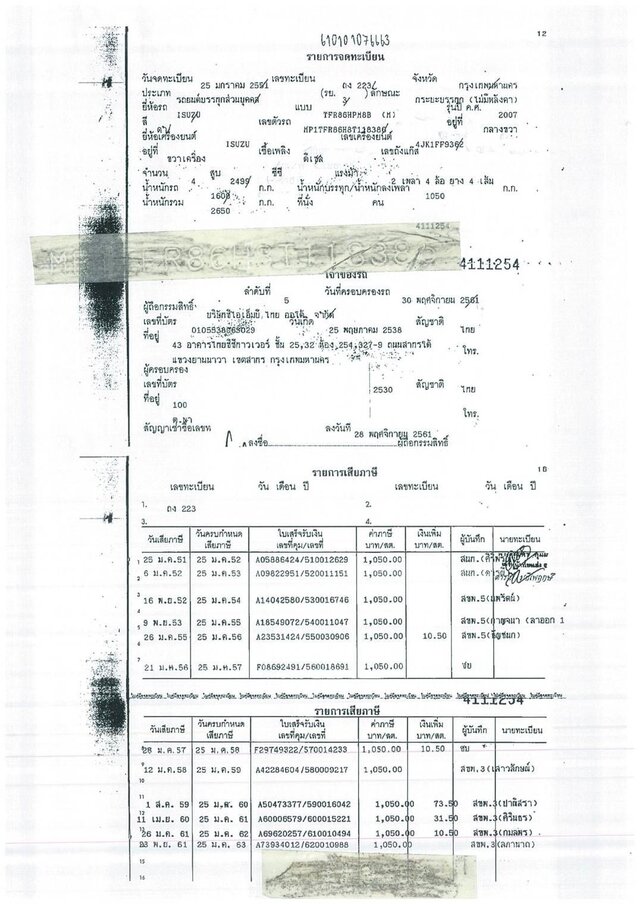 12
610101076663
รายการจดทะเบียน
วันจดทะเบียน 25 มกราคม 2551 เลขทะเบียน ถง 223 จังหวัด กรุงเทพมหานคร
ประเภท รถยนต์บรรทุกส่วนบุคคล (รย. 3) ลักษณะ กระบะบรรทุก (ไม่มีหลังคา)
ยี่ห้อรถ ISUZU แบบ TFR86HPM8B (M) รุ่นปี ค.ศ. 2007
สี เลขตัวรถ อยู่ที่ กลางขวา
ยี่ห้อเครื่องยนต์ ISUZU เลขเครื่องยนต์
อยู่ที่ ขวาเครื่อง เชื้อเพลิง ดีเซล เลขถังแก๊ส
จำนวน 4 สูบ 2499 ซีซี แรงม้า 2 เพลา 4 ล้อ ยาง 4 เส้น
น้ำหนักรถ ก.ก. น้ำหนักบรรทุก/น้ำหนักลงเพลา 1050 ก.ก.
น้ำหนักรวม 2650 ก.ก. ที่นั่ง คน
4111254
4111254
เจ้าของรถ
ลำดับที่ 5 วันที่ครอบครองรถ 30 พฤศจิกายน 2561
ผู้ถือกรรมสิทธิ์
เลขที่บัตร วันเกิด 25 พฤษภาคม 2538 สัญชาติ ไทย
ที่อยู่ 43 อาคารไทยซีซีทาวเวอร์ ชั้น 25,32 ห้อง 254,327-9 ถนนสาทรใต้
แขวงยานนาวา เขตสาทร กรุงเทพมหานคร โทร.
ผู้ครอบครอง
เลขที่บัตร 2530 สัญชาติ ไทย
ที่อยู่ 100
โทร.
สัญญาเช่าซื้อเลขที่ ลงวันที่ 28 พฤศจิกายน 2561
ลงชื่อ ผู้ถือกรรมสิทธิ์
รายการเสียภาษี
18
เลขทะเบียน วัน เดือน ปี เลขทะเบียน วัน เดือน ปี
1. ถง 223 2.
3. 4.
วันเสียภาษี วันครบกำหนดเสียภาษี ใบเสร็จรับเงิน เลขที่คุม/เลขที่ ค่าภาษี บาท/สต. เงินเพิ่ม บาท/สต. ผู้บันทึก นายทะเบียน
25 ม.ค.51 25 ม.ค.52 A05886424/510012629 1,050.00
6 ม.ค.52 25 ม.ค.53 A09822951/520011151 1,050.00
16 พ.ย.52 25 ม.ค.54 A14042580/530016746 1,050.00
9 พ.ย.53 25 ม.ค.55 A18549072/540011047 1,050.00
26 ม.ค.55 25 ม.ค.56 A23531424/550030906 1,050.00 10.50
21 ม.ค.56 25 ม.ค.57 F08692491/560018691 1,050.00
4111254
รายการเสียภาษี
วันเสียภาษี วันครบกำหนดเสียภาษี ใบเสร็จรับเงิน เลขที่คุม/เลขที่ ค่าภาษี บาท/สต. เงินเพิ่ม บาท/สต. ผู้บันทึก นายทะเบียน
28 ม.ค.57 25 ม.ค.58 F29749322/570014233 1,050.00 10.50
12 ม.ค.58 25 ม.ค.59 A42284604/580009217 1,050.00 สขพ.3(เสาวลักษณ์)
1 ส.ค. 59 25 ม.ค. 60 A50473377/590016042 1,050.00 73.50 สขพ.3(ปาลิสรา)
11 เม.ย. 60 25 ม.ค. 61 A60006579/600015221 1,050.00 31.50 สขพ.3(ศิริมธร)
26 ม.ค. 61 25 ม.ค. 62 A69620257/610010494 1,050.00 10.50 สขพ.3(กมลพร)
23 พ.ย. 61 25 ม.ค. 63 A73934012/620010988 1,050.00